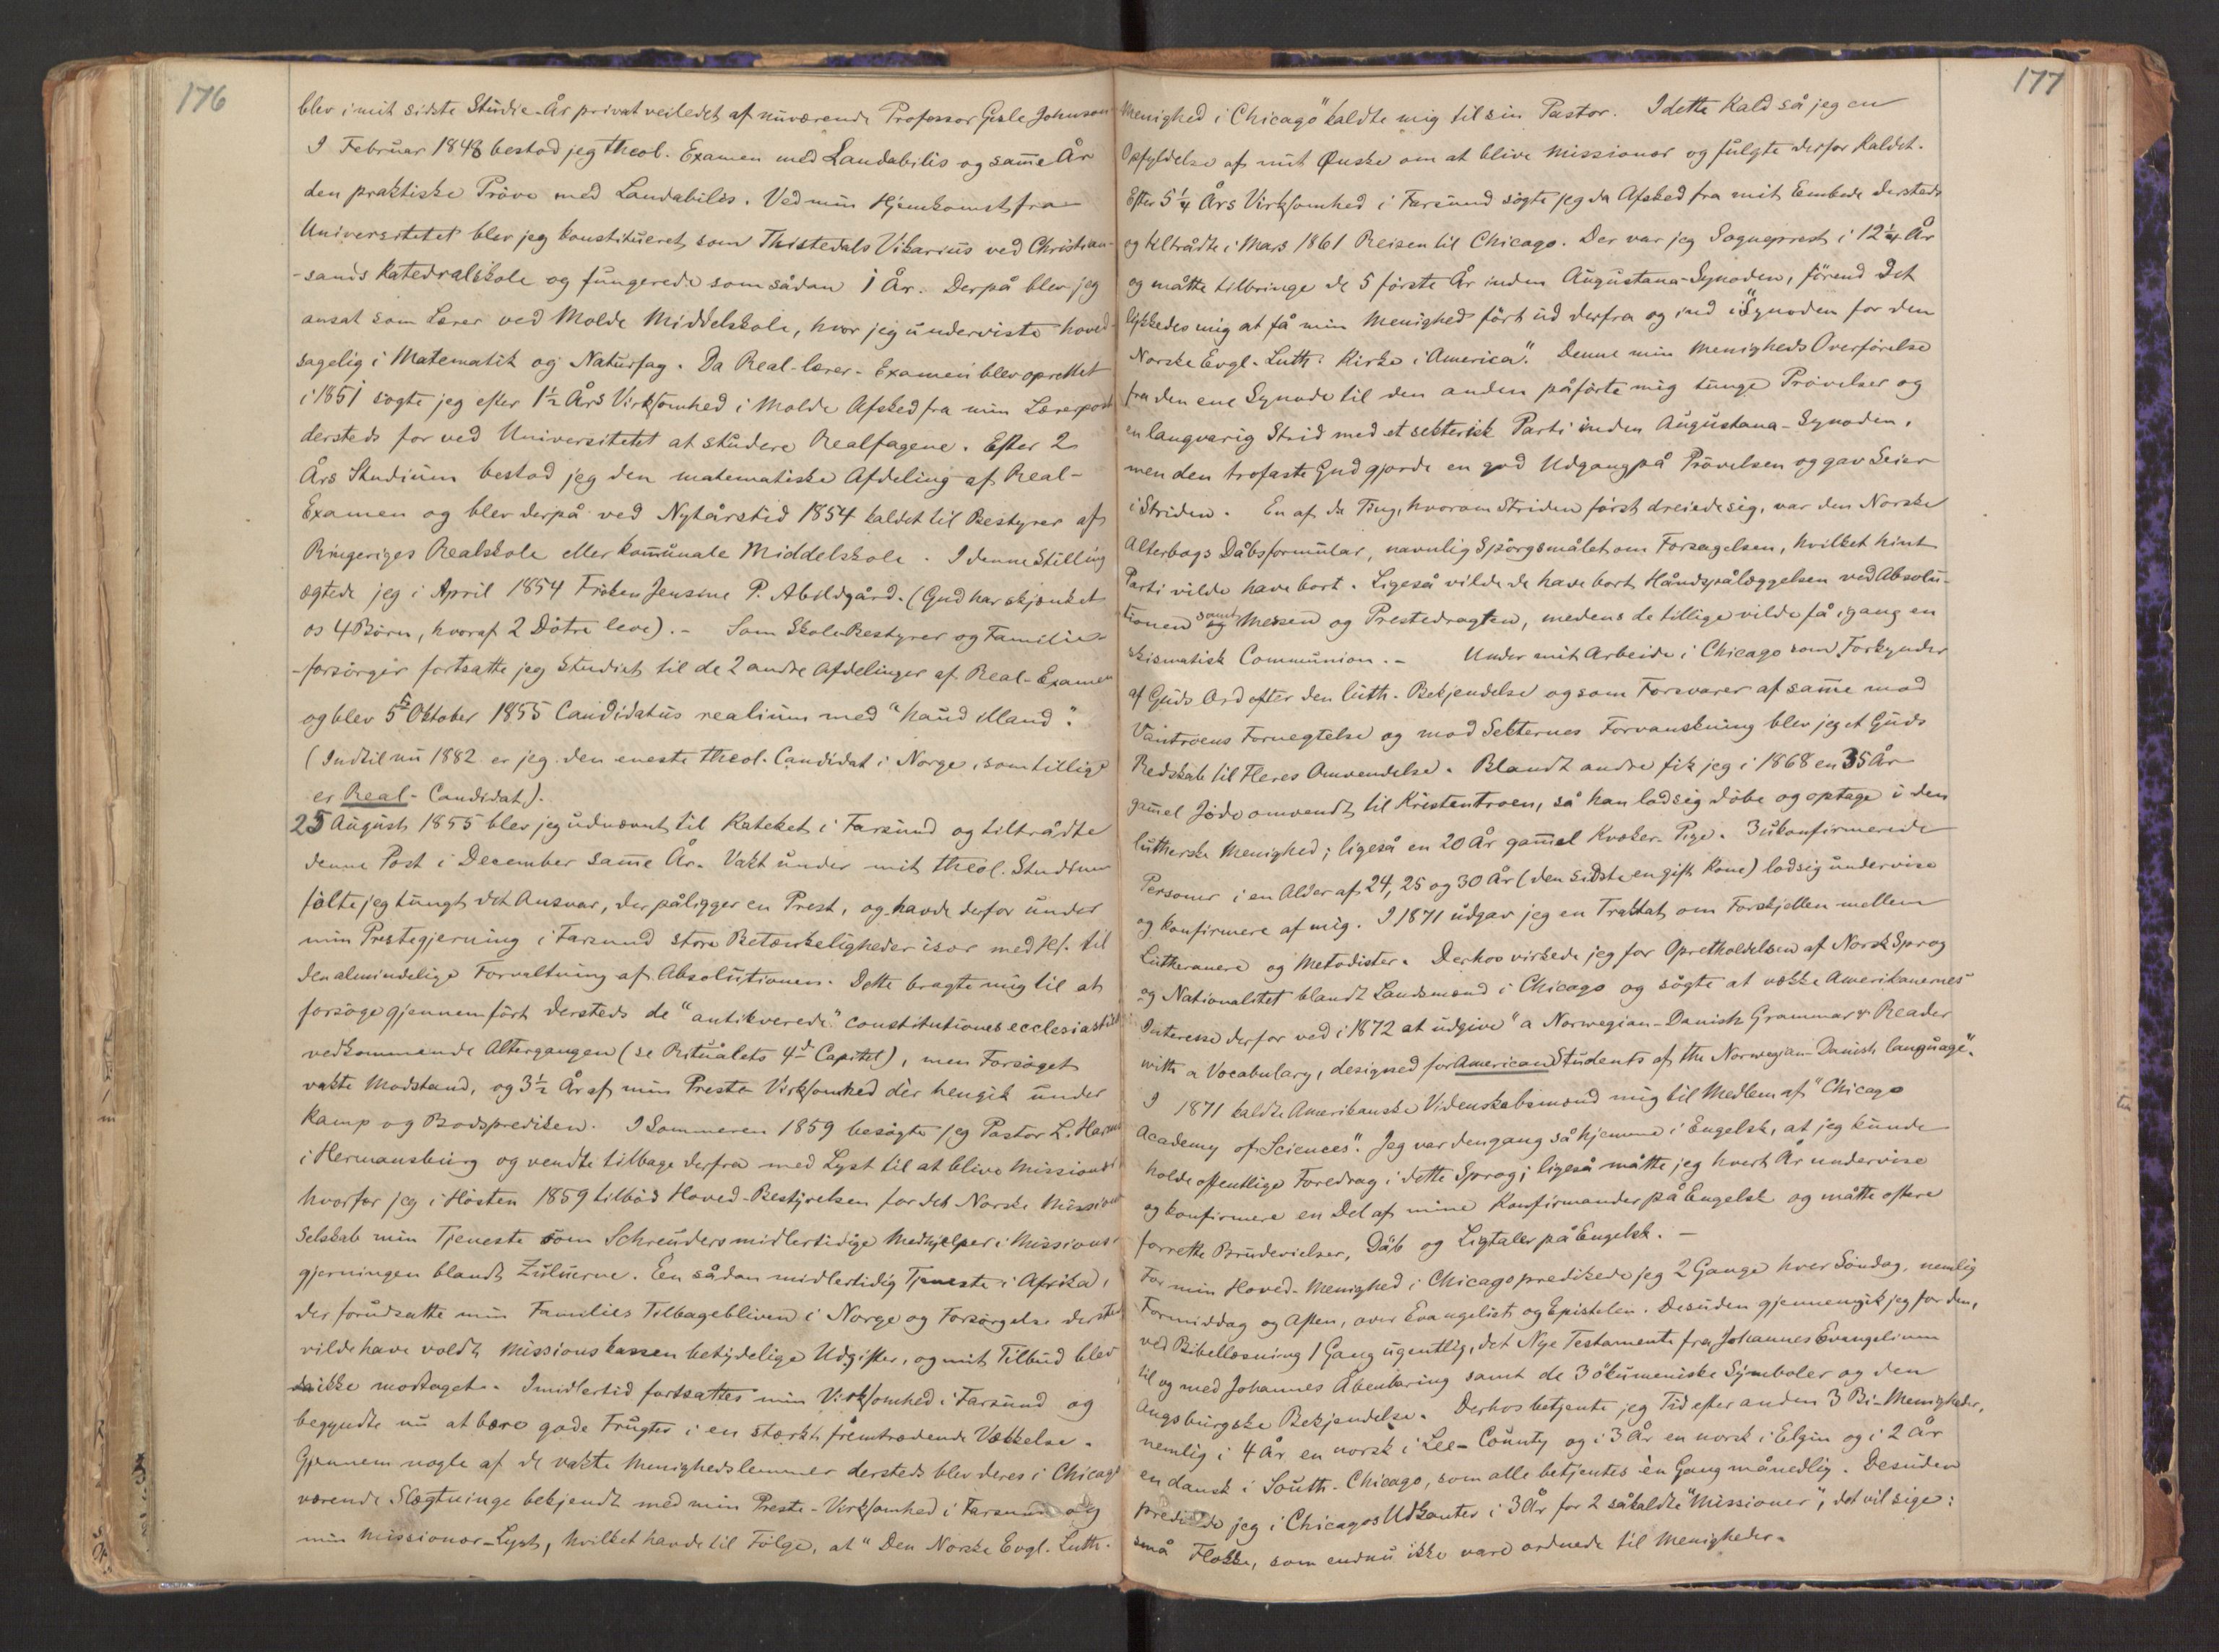 176
blev i mit sidste Studie-År privat veiledet af nuværende Professor Gisle Johnson
I Februar 1848 bestod jeg theol. Examen med Laudabilis og sam̄e År
den praktiske Pröve med Laudabilis. Ved min Hjemkomst fra
Universitetet blev jeg konstitueret som Thistedals Vikarius ved Christian-
-sands Katedralskole og fungerede som sådan 1 År. Derpå blev jeg
ansat som Lærer ved Molde Middelskole, hvor jeg underviste hoved-
sagelig i Matematik og Naturfag. Da Real-lærer-Examen blev oprettet
i 1851 sögte jeg efter 1½ Års Virksomhed i Molde Afsked fra min Lærerpost
dersteds for ved Universitetet at studere Realfagene. Efter 2
Års Studium bestod jeg den matematiske Afdeling af Real-
Examen og blev derpå ved Nytårstid 1854 kaldet til Bestyrer af
Ringeriges Realskole eller kom̄unale Middelskole. I denne Stilling
ægtede jeg i April 1854 Fröken Jensine P. Abildgård. (Gud har skjænket
os 4 Börn, hvoraf 2 Dötre leve). - Som Skole-Bestyrer og Familie-
-forsörger fortsatte jeg Studiet til de 2 andre Afdelinger af Real-Examen
og blev 5te Oktober 1855 Candidatus realium med "haud illaud".
(Indtil nu 1882 er jeg den eneste theol. Candidat i Norge, som tillige
er Real-Candidat).
25 August 1855 blev jeg udnævnt til Kateket i Farsund og tiltrådte
denne Post i December sam̄e År. Vakt under mit theol. Studium
fölte jeg tungt det Ansvar, der påligger en Prest, og havde derfor under
min Prestegjerning i Farsund store Betænkeligheder især med Hs. til
den almindelige Forvaltning af Absolutionen. Dette bragte mig til at
forsöge gjennemfört dersteds de "antikverede" constitutiones ecclesiasticæ
vedkommende Altergangen (se Ritualets 4d Capitel), men Forsöget
vakte Modstand, og 3½ År af min Preste-Virksomhed dèr hengik under
Kamp og Bodsprediken. I Sommeren 1859 besögte jeg Pastor L. Harms
i Hermansburg og vendte tilbage derfra med Lyst til at blive Missionær
hvorfor jeg i Hösten 1859 tilböd Hoved-Bestyrelsen for det Norske Missions
Selskab min Tjeneste som Schreuders midlertidige Medhjelper i Missions-
gjerningen blandt Zuluerne. En sådan midlertidig Tjeneste i Afrika,
der forudsatte min Families Tilbagebliven i Norge og Forsörgelse dersteds
vilde have voldt Missionskassen betydelige Udgifter, og mit Tilbud blev
da ikke modtaget. Imidlertid fortsattes min Virksomhed i Farsund og
begyndte nu at bære gode Frugter i en stærkt fremtrædende Vækkelse.
Gjennem nogle af de vakte Menighedslemmer dersteds blev deres i Chicago
værende Slægtninge bekjendt med min Preste-Virksomhed i Farsund og
min Missionær-Lyst, hvilket havde til Fölge, at "Den Norske Evgl. Luth.
177
Menighed i Chicago" kaldte mig til sin Pastor. I dette Kald så jeg en
Opfyldelse af mit Önske om at blive Missionær og fulgte derfor Kaldet.
Efter 5¼ Års Virksomhed i Farsund sögte jeg da Afsked fra mit Embede dersteds
og tiltrådte i Mars 1861 Reisen til Chicago. Der var jeg Sogneprest i 12¼ År
og måtte tilbringe de 5 förste År inden Augustana-Synoden, förend det
lykkedes mig at få min Menighed fört ud derfra og ind i "Synoden for den
Norske Evgl.-Luth. Kirke i America". Denne min Menigheds Overförelse
fra den ene Synode til den anden påförte mig tunge Prövelser og
en langvarig Strid med et sekterisk Parti inden Augustana-Synoden,
men den trofaste Gud gjorde en god Udgang på Prövelsen og gav Seier
i Striden. En af de Ting, hvorom Striden först dreiede sig, var den Norske
Alterbogs Dåbsformular, navnlig Spörgsmålet om Forsagelsen, hvilket hint
Parti vilde have bort. Ligeså vilde de have bort Håndspålæggelsen ved Absolu-
tionen samt Messen og Prestedragten, medens de tillige vilde få igang en
skismatisk Communion. - Under mit Arbeide i Chicago som Forkynder
af Guds Ord efter den luth. Bekjendelse og som Forsvarer af sam̄e mod
Vantroens Fornegtelse og mod Sekternes Forvanskning blev jeg et Guds
Redskab til Fleres Omvendelse. Blandt andre fik jeg i 1868 en 35 År
gam̄el Jöde omvendt til Kristentroen, så han lod sig döbe og optage i den
lutherske Menighed; ligeså en 20 År gam̄el Kvæker-Pige. 3 ukonfirmerede
Personer i en Alder af 24, 25 og 30 År (den sidste en gift Kone) lod sig undervise
og konfirmere af mig. I 1871 udgav jeg en Traktat om Forskjellen mellem
Lutheranere og Metodister. Derhos virkede jeg for Opretholdelsen af Norsk Sprog
og Nationalitet blandt Landsmænd i Chicago og sögte at vække Amerikanernes
Interesse derfor ved i 1872 at udgive "a Norwegian-Danish Grammar & Reader
with a Vocabulary, designed for American Students of the Norwegian-Danish language".
I 1871 kaldte Amerikanske Videnskabsmænd mig til Medlem af "Chicago
Academy of Sciences". Jeg var dengang så hjemme i Engelsk, at jeg kunde
holde offentlige Foredrag i dette Sprog; ligeså måtte jeg hvert År undervise
og konfirmere en Del af mine Konfirmander på Engelsk og måtte oftere
forrette Brudevielser, Dåb og Ligtaler på Engelsk. -
For min Hoved-Menighed i Chicago predikede jeg 2 Gange hver Söndag, nemlig
Formiddag og Aften, over Evangeliet og Epistelen. Desuden gjennemgik jeg for den,
ved Bibellæsning 1 Gang ugentlig, det Nye Testamente fra Johannes Evangelium
til og med Johannes Åbenbaring samt de 3 ökumeniske Symboler og den
Augsburgske Bekjendelse. Derhos betjente jeg Tid efter anden 3 Bi-Menigheder,
nemlig i 4 År en norsk i Lee-County og i 3 År en norsk i Elgin og i 2 År
en dansk i South-Chicago, som alle betjentes èn Gang månedlig. Desuden
predikede jeg i Chicagos Udkanter i 3 År for 2 såkaldte "Missioner", det vil sige:
små Flokke, som endnu ikke vare ordnede til Menigheder.